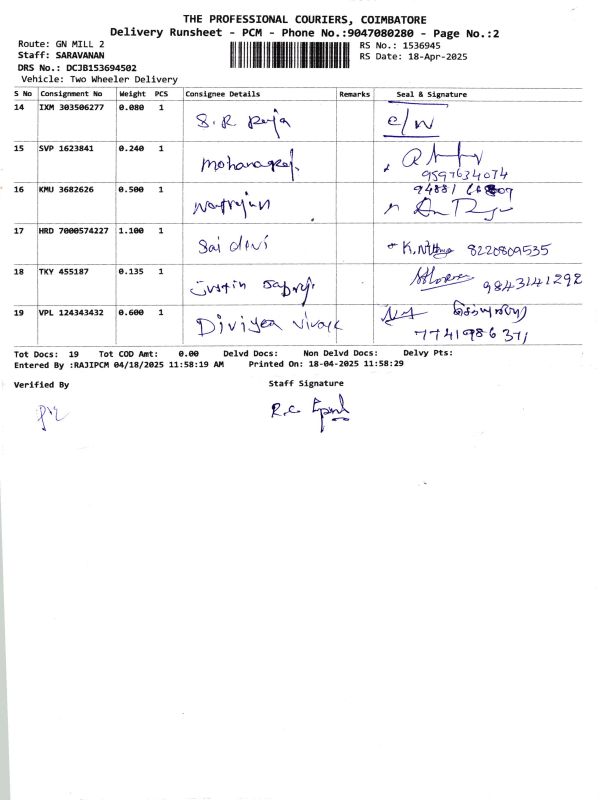 THE PROFESSIONAL COURIERS, COIMBATORE
Delivery Runsheet - PCM - Phone No.:9047080280 - Page No.:2
Route: GN MILL 2 RS No.: 1536945
Staff: SARAVANAN RS Date: 18-Apr-2025
DRS No.: DCJB153694502
Vehicle: Two Wheeler Delivery
S No Consignment No Weight PCS Consignee Details Remarks Seal & Signature
14 IXM 303506277 0.080 1 S.R Raja c/w
15 SVP 1623841 0.240 1 Mohanaraj. 9597634074
16 KMU 3682626 0.500 1 Natrajan 94881
17 HRD 7000574227 1.100 1 Sai devi 8220809535
18 TKY 455187 0.135 1 Justin 9843141292
19 VPL 124343432 0.600 1 Diviyea Vivayk 7741986371
Tot Docs: 19 Tot COD Amt: 0.00 Delvd Docs: Non Delvd Docs: Delvy Pts:
Entered By :RAJIPCM 04/18/2025 11:58:19 AM Printed On: 18-04-2025 11:58:29
Verified By Staff Signature
R.C